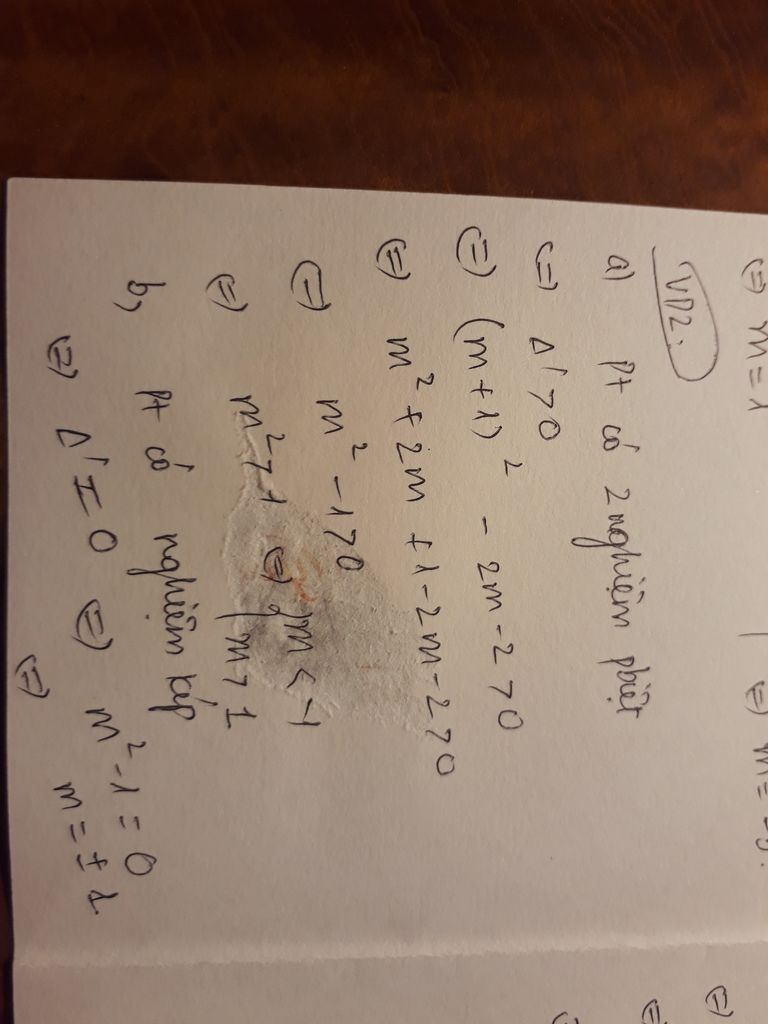 (=) m = 1
(=) m = -5.
VD2.
a) Pt có 2 nghiệm phiệt
(=) Δ' > 0
(=) (m+1)² - 2m - 2 > 0
(=) m² + 2m + 1 - 2m - 2 > 0
(=) m² - 1 > 0
(=) m² > 1 (=) m < -1
m > 1
b, Pt có nghiệm kép
(=) Δ' = 0 (=) m² - 1 = 0
(=) m = ± 1
(=)
(=)